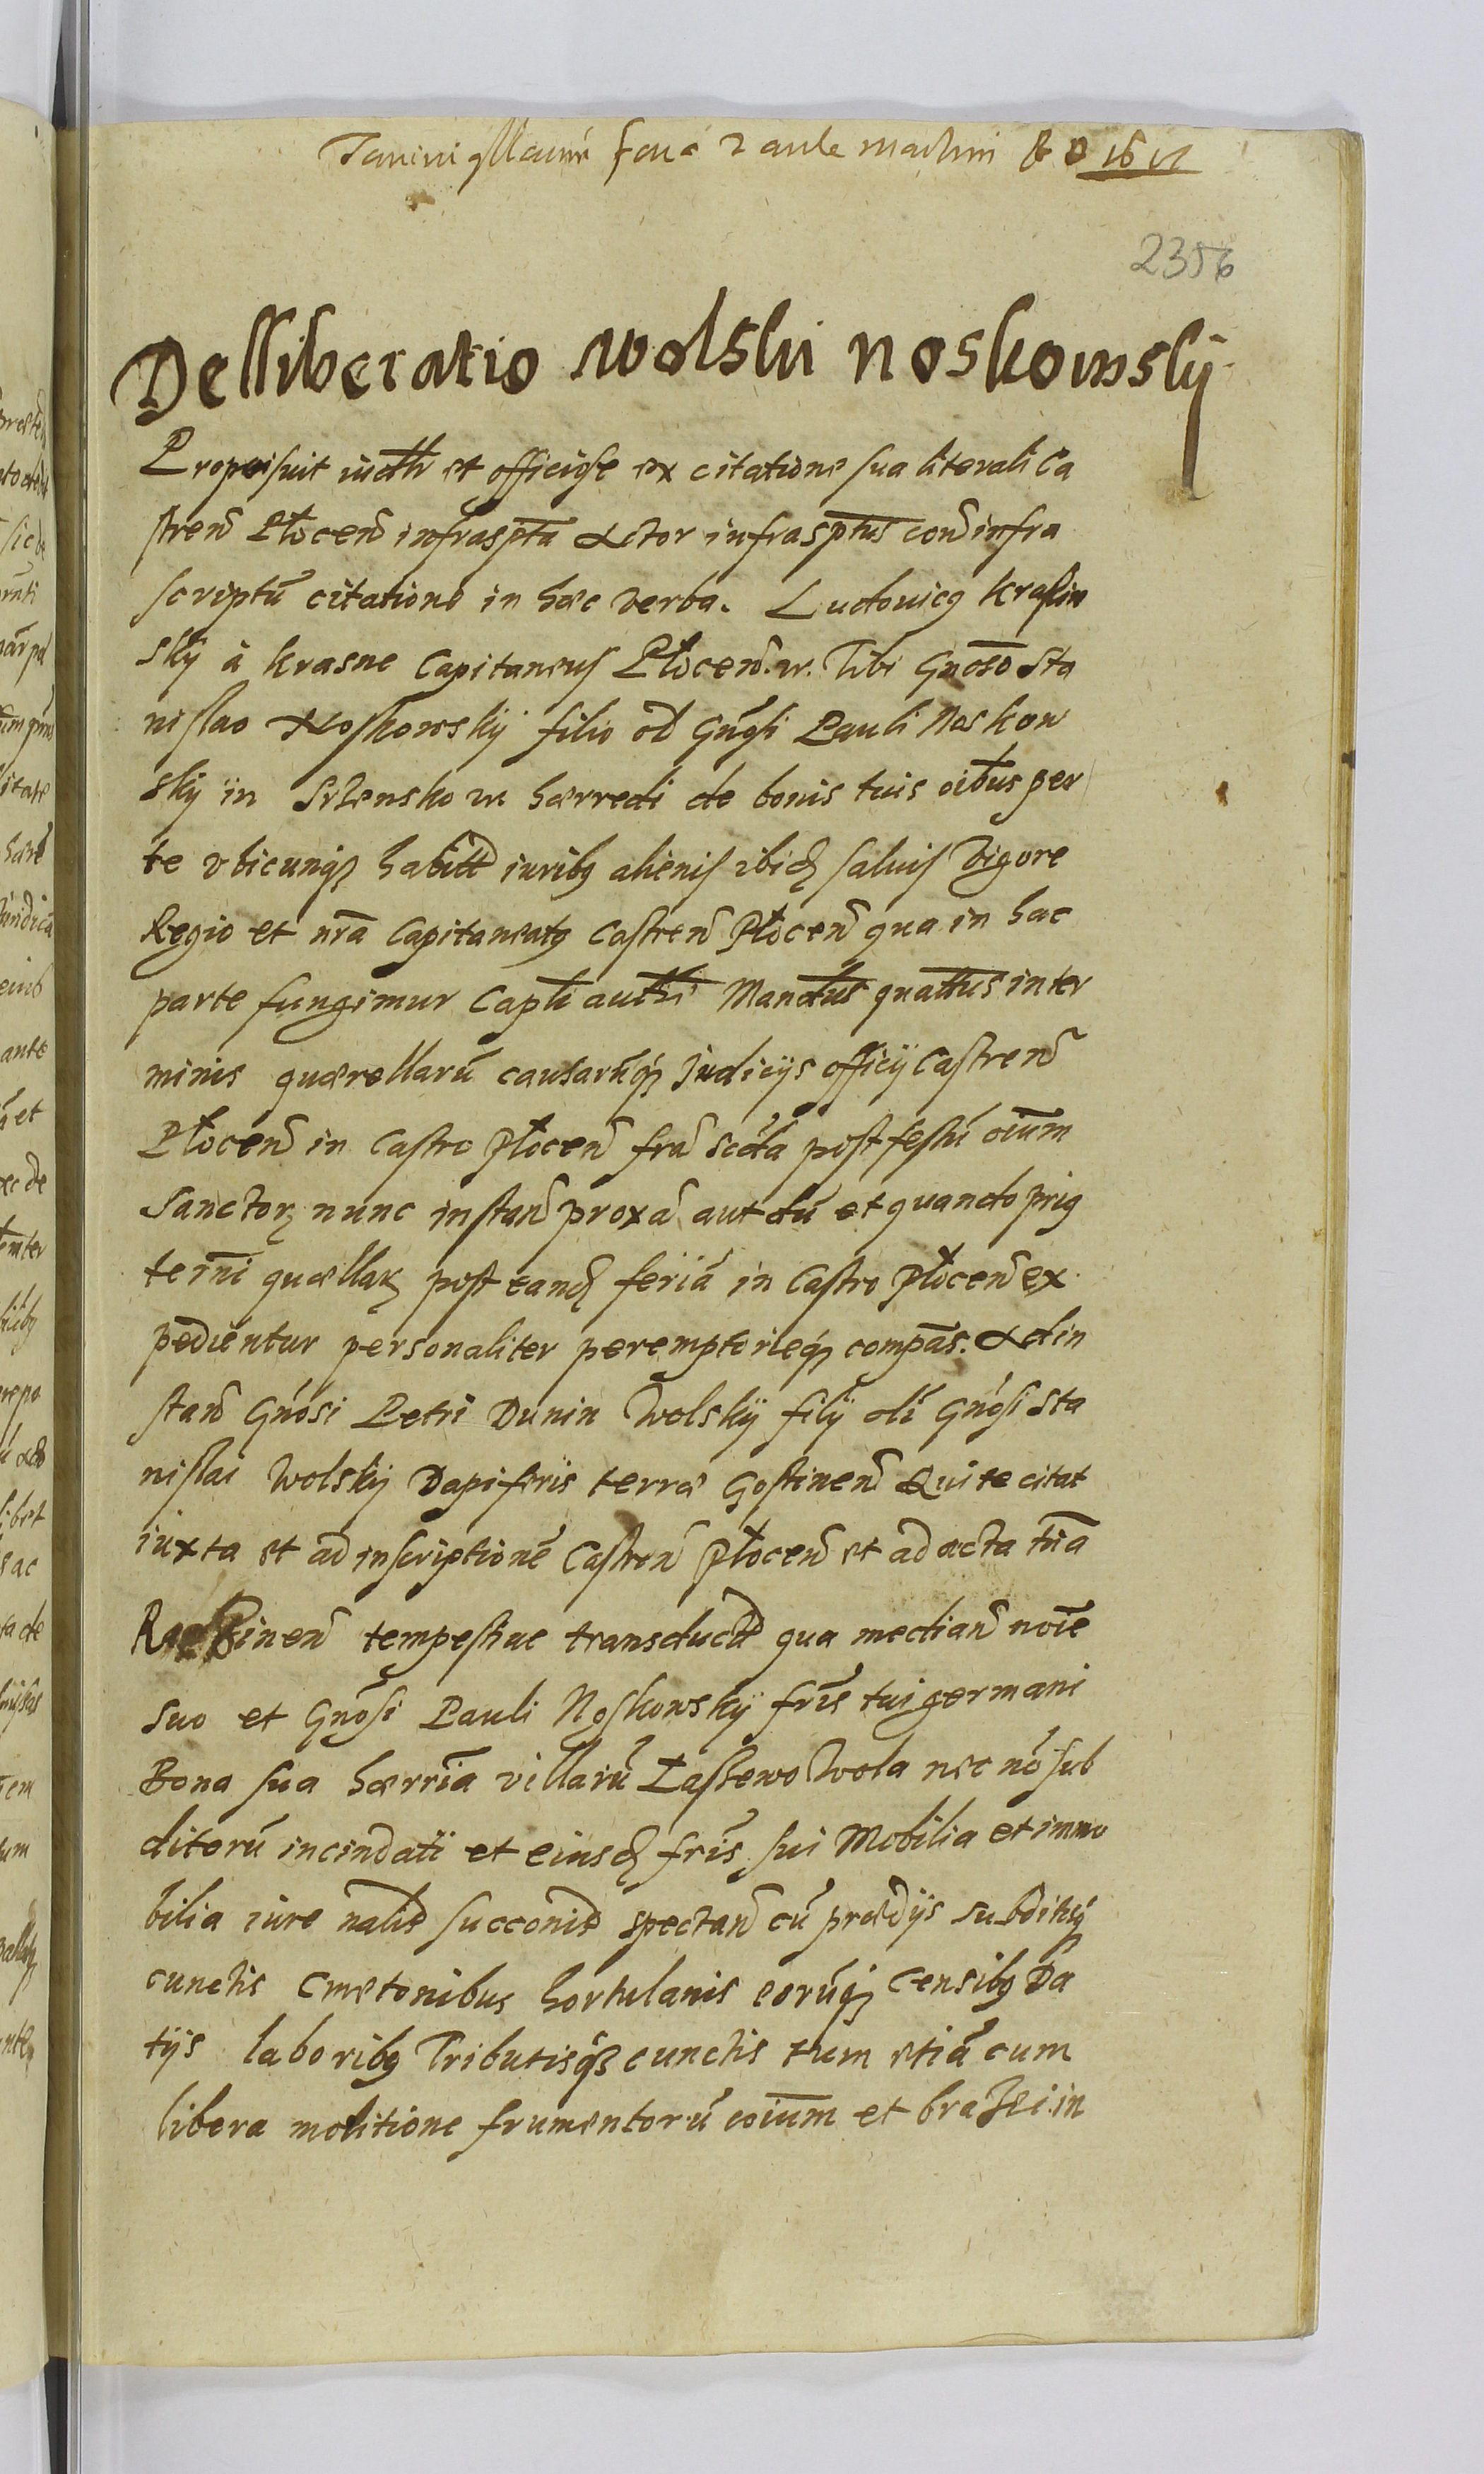 2356
Delliberatio Wolski Noskowsky
Proposuit iudtr et officiose ex citatione sua literali Ca
stren̄ Płocen̄ infrasp̄ta Actor infrasp̄tus con̄ infra
scriptū citatione in hæc verba. Ludouicꝰ Krasin
sky à Krasne Capitaneus Płocen̄. Tibi Gnoso Sta
nislao Noskowsky filio ol Gn̄osi Pauli Noskow
sky in Srzensko hærredi de bonis tuis oībus per
te vbicunqꝫ habitt iuribꝰ alienis ibid saluis Vigore
Regio et nr̄a Capitaneatꝰ Castren̄ Płocen̄ qua in hac
parte fungimur Caplī autti Mandtus quattus in ter
minis quærellarū causarūqꝫ Judicijs officij Castren̄
Płocen̄ in Castro Płocen̄ fra scda post festū oīum
Sanctorꝫ nunc instan̄ proxa aut dū et quando prıꝰ
termi quællarꝫ post eand feriā in Castro Płocen̄ ex
pedientur personaliter peremptorieqꝫ compās. Ad in
stan̄ Gnosi Petri Dunin Wolsky filij oli Gnosi Sta
nislai Wolsky Dapiferis terræ Gostinen̄ Qui te citat
iuxta et ad inscriptionē Castren̄ Płocen̄ et ad acta tr̄ia
tempestiue transductt qua median̄ noīe
suo et Gnosi Pauli Noskowsky fris tui germani
Bona sua hærria villarū Łaszewo Wola nec nō sub
ditorū incindati et eiusd fris sui Mobilia et immo
bilia iure nalie succonie spectan̄ cū prædijs subditisqꝫ
cunctis Cmetonibus hortulanis eorūqꝫ censibꝰ Da
tijs laboribꝰ Tributisqꝫ cunctis tum etiā cum
libera molitione frumentorū oīum et brasei in